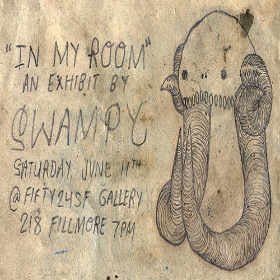 "IN MY ROOM"
AN EXHIBIT BY
SWAMPY
SATURDAY JUNE 11TH
@ FIFTY24SF GALLERY
218 FILLMORE 7PM